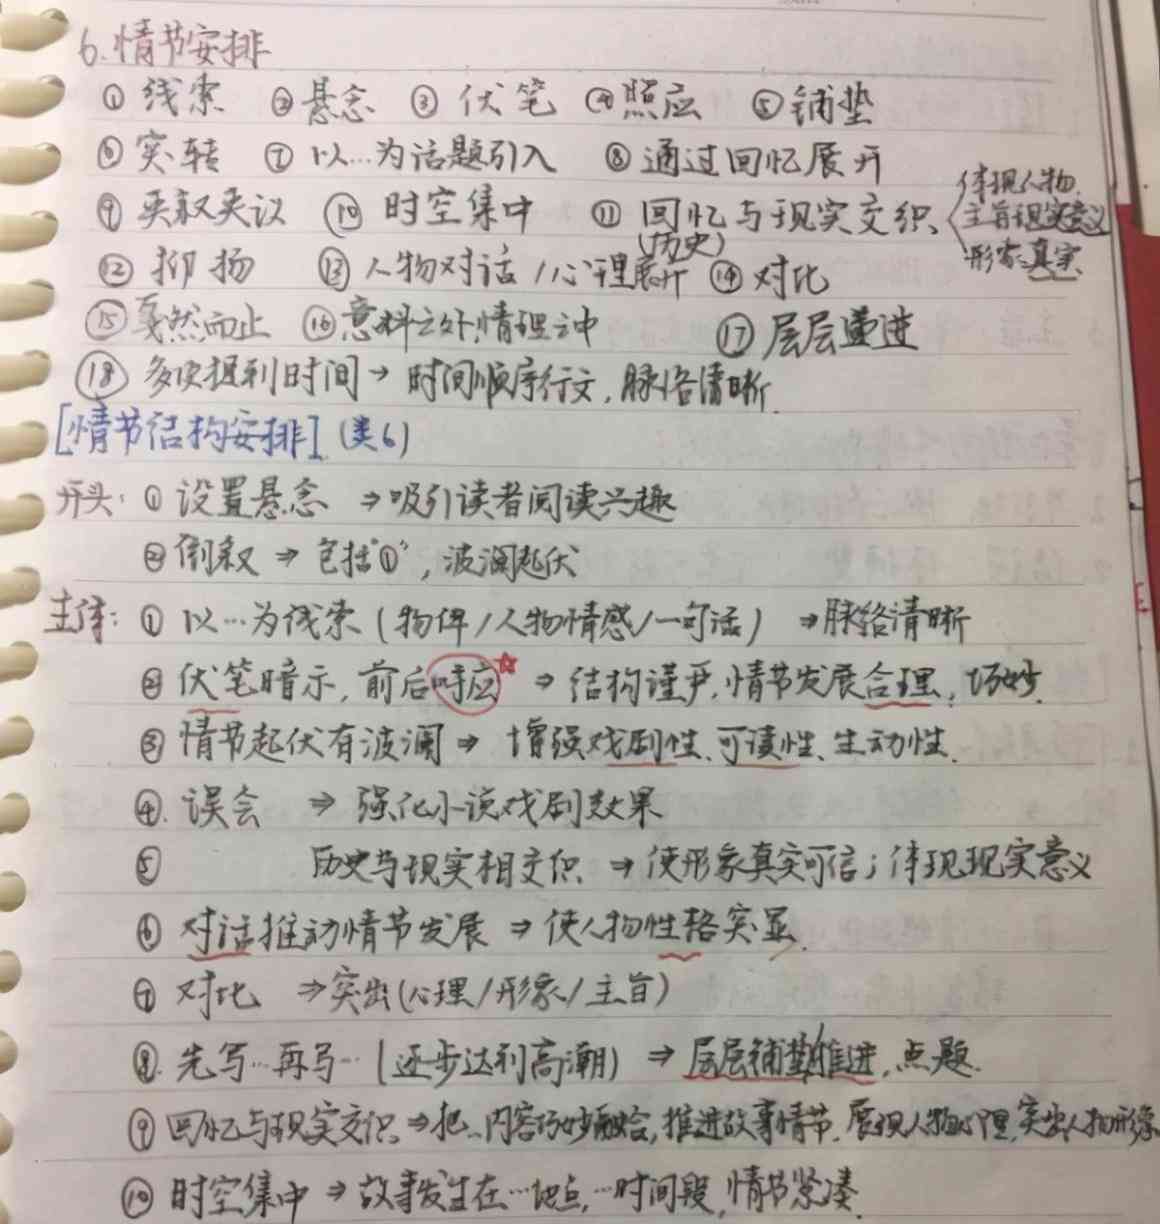 6.情节安排
① 线索 ② 悬念 ③ 伏笔 ④ 照应 ⑤ 铺垫
⑥ 突转 ⑦ 以…为话题引入 ⑧ 通过回忆展开
⑨ 夹叙夹议 ⑩ 时空集中 ⑪ 回忆与现实交织
(历史)
体现人物.
主旨现实意义
形象真实
⑫ 抑扬 ⑬ 人物对话/心理展开 ⑭ 对比
⑮ 戛然而止 ⑯ 意料之外,情理之中 ⑰ 层层递进
⑱ 多次提到时间→时间顺序行文,脉络清晰.
[情节结构安排] (类6)
开头: ① 设置悬念 ⇒吸引读者阅读兴趣
② 倒叙 ⇒ 包括"①",波澜起伏
主体: ① 以…为线索(物件/人物情感/一句话) ⇒脉络清晰
② 伏笔暗示,前后呼应☆ ⇒ 结构谨严,情节发展合理,巧妙.
③ 情节起伏有波澜 ⇒ 增强戏剧性、可读性、生动性.
④. 误会 ⇒ 强化小说戏剧效果
⑤ 历史与现实相交织 ⇒使形象真实可信;体现现实意义
⑥ 对话推动情节发展 ⇒ 使人物性格突显.
⑦ 对比 ⇒突出(心理/形象/主旨)
⑧. 先写…再写…(逐步达到高潮) ⇒ 层层铺垫推进,点题.
⑨ 回忆与现实交织⇒把…内容巧妙融合,推进故事情节,展现人物心理,突出人物形象
⑩ 时空集中 ⇒ 故事发生在…地点,…时间段,情节紧凑.